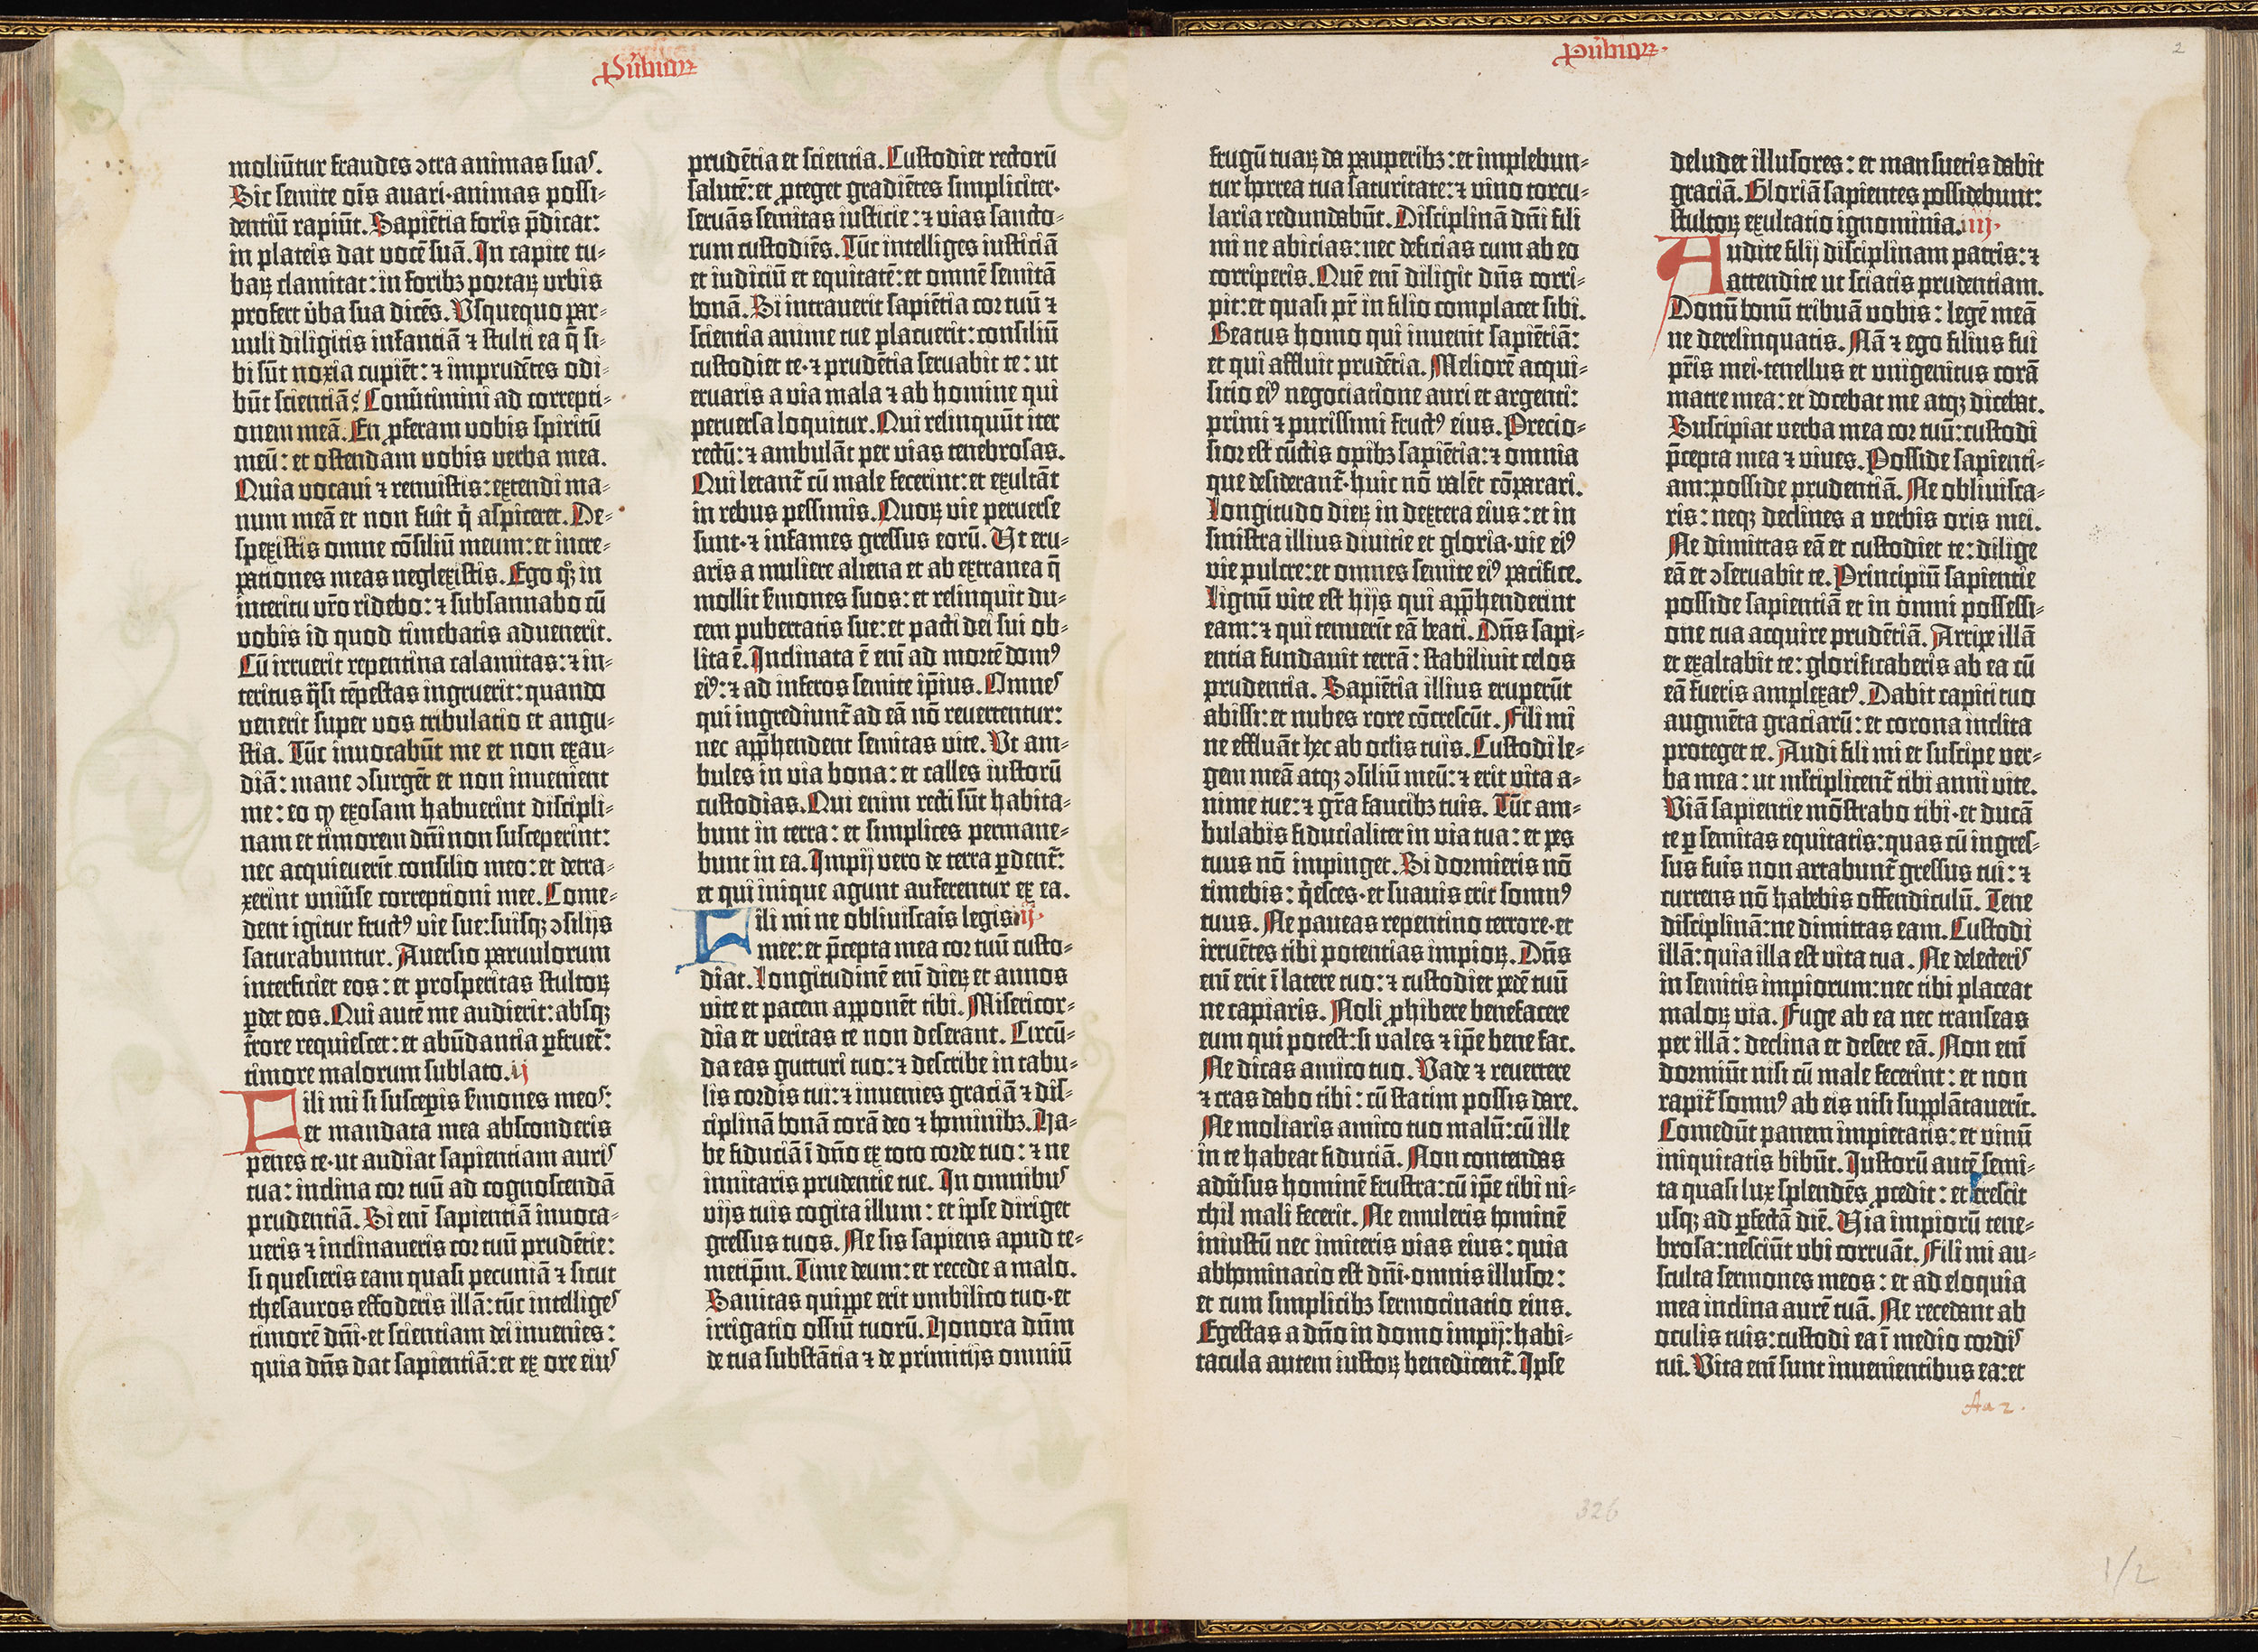 Prouerbioꝝ
moliūtur fraudes ↄtra animas suas.
Sic semite oīs auari·animas possi-
dentiū rapiūt. Sapiētia foris p̄dicat:
in plateis dat vocē suā. In capite tu-
baꝝ clamitat: in foribꝫ portaꝝ urbis
profert v̄ba sua dicēs. Usquequo par-
uuli diligitis infantiā ⁊ stulti ea q̄ si-
bi sūt noxia cupiēt: ⁊ imprudētes odi-
būt scientiā? Conūtimini ad correpti-
onem meā. En ꝓferam vobis spiritū
meū: et ostendam vobis verba mea.
Quia vocaui ⁊ renuistis: extendi ma-
num meā et non fuit q̄ aspiceret. De-
spexistis omne cōsiliū meum: et incre-
pationes meas neglexistis. Ego qͦꝫ in
interitu vr̄o ridebo: ⁊ subsannabo cū
vobis id quod timebatis aduenerit.
Cū irruerit repentina calamitas: ⁊ in-
teritus q̄si tēpestas ingruerit: quando
venerit super vos tribulatio et angu-
stia. Tūc inuocabūt me et non exau-
diā: mane ↄsurgēt et non inuenient
me: eo ꝙ exosam habuerint discipli-
nam et timorem dn̄i non susceperint:
nec acquieuerīt consilio meo: et detra-
xerint uniūse correptioni mee. Come-
dent igitur fructꝰ vie sue: suisqꝫ ↄsilijs
saturabuntur. Auersio paruulorum
interficiet eos: et prosperitas stultoꝝ
ꝑdet eos. Qui autē me audierit: absqꝫ
t̄rore requiescet: et abūdantia ꝑfruet᷑:
timore malorum sublato. ij
Fili mi si susceperis s̄mones meos:
et mandata mea absconderis
penes te·ut audiat sapientiam auris
tua: inclina cor tuū ad cognoscendā
prudentiā. Si eni sapientiā inuoca-
ueris ⁊ inclinaueris cor tuū prudētie:
si quesieris eam quasi pecuniā ⁊ sicut
thesauros effoderis illā: tūc intelliges
timorē dn̄i·et scientiam dei inuenies:
quia dn̄s dat sapientiā: et ex ore eius
prudētia et scientia. Custodiet rectorū
salutē: et ꝓteget gradiētes simpliciter·
seruās semitas iusticie: ⁊ vias sancto-
rum custodiēs. Tūc intelliges iusticiā
et iudiciū et equitatē: et omnē semitā
bonā. Si intrauerit sapiētia cor tuū ⁊
scientia anime tue placuerit: consiliū
custodiet te·⁊ prudētia seruabit te: ut
eruaris a via mala ⁊ ab homine qui
peruersa loquitur. Qui relinquūt iter
rectū: ⁊ ambulāt per vias tenebrosas.
Qui letant᷑ cū male fecerint: et exultāt
in rebus pessimis. Quoꝝ vie peruerse
sunt·⁊ infames gressus eorū. Ut eru-
aris a muliere aliena et ab extranea q̄
mollit s̄mones suos: et relinquit du-
cem pubertatis sue: et pacti dei sui ob-
lita ē. Inclinata ē enī ad mortē domꝰ
eiꝰ: ⁊ ad inferos semite ip̄ius. Omnes
qui ingrediunt᷑ ad eā nō reuertentur:
nec app̄hendent semitas vite. Ut am-
bules in via bona: et calles iustorū
custodias. Qui enim recti sūt habita-
bunt in terra: et simplices permane-
bunt in ea. Impij vero de terra ꝑdent᷑:
et qui inique agunt auferentur ex ea.
Fili mi ne obliuiscaris legis iij·
mee: et p̄cepta mea cor tuū custo-
diat. Longitudinē enī dieꝝ et annos
vite et pacem apponēt tibi. Misericor-
dia et veritas te non deserant. Circū-
da eas gutturi tuo: ⁊ describe in tabu-
lis cordis tui: ⁊ inuenies graciā ⁊ dis-
ciplinā bonā corā deo ⁊ hominibꝫ. Ha-
be fiduciā ī dn̄o ex toto corde tuo: ⁊ ne
innitaris prudentie tue. In omnibus
vijs tuis cogita illum: et ipse diriget
gressus tuos. Ne sis sapiens apud te-
metip̄m. Time deum: et recede a malo.
Sanitas quippe erit umbilico tuo·et
irrigatio ossiū tuorū. Honora dn̄m
de tua substātia ⁊ de primitijs omniū
Prouerbioꝝ· 2
frugū tuaꝝ da pauperibꝫ: et implebun-
tur horrea tua saturitate: ⁊ vino torcu-
laria redundabūt. Disciplinā dn̄i fili
mi ne abicias: nec deficias cum ab eo
corriperis. Quē enī diligit dn̄s corri-
pit: et quasi pr̄ in filio complacet sibi.
Beatus homo qui inuenit sapiētiā:
et qui affluit prudētia. Meliorē acqui-
sitio eiꝰ negociatione auri et argenti:
primi ⁊ purissimi fructꝰ eius. Precio-
sior est cūctis opibꝫ sapiētia: ⁊ omnia
que desiderant᷑·huic nō valēt cōparari.
Longitudo dieꝝ in dextera eius: et in
sinistra illius diuitie et gloria·vie eiꝰ
vie pulcre: et omnes semite eiꝰ pacifice.
Lignū vite est hijs qui app̄henderint
eam: ⁊ qui tenuerīt eā beati. Dn̄s sapi-
entia fundauit terrā: stabiliuit celos
prudentia. Sapiētia illius eruperūt
abissi: et nubes rore cōcrescūt. Fili mi
ne effluāt hec ab oclis tuis. Custodi le-
gem meā atqꝫ ↄsiliū meū: ⁊ erit vita a-
nime tue: ⁊ gr̄a faucibꝫ tuis. Tūc am-
bulabis fiducialiter in via tua: et pes
tuus nō impinget. Si dormieris nō
timebis: q̄esces·et suauis erit somnꝰ
tuus. Ne paueas repentino terrore·et
irruētes tibi potentias impioꝝ. Dn̄s
enī erit ī latere tuo: ⁊ custodiet pedē tuū
ne capiaris. Noli ꝓhibere benefacere
eum qui potest: si vales ⁊ ip̄e bene fac.
Ne dicas amico tuo. Vade ⁊ reuertere
⁊ cras dabo tibi: cū statim possis dare.
Ne moliaris amico tuo malū: cū ille
in te habeat fiduciā. Non contendas
adūsus hominē frustra: cū ip̄e tibi ni-
chil mali fecerit. Ne emuleris hominē
iniustū nec imiteris vias eius: quia
abhominacio est dn̄i·omnis illusor:
et cum simplicibꝫ sermocinatio eius.
Egestas a dn̄o in domo impij: habi-
tacula autem iustoꝝ benedicent᷑. Ipse
deludet illusores: et mansuetis dabit
graciā. Gloriā sapientes possidebunt:
stultoꝝ exultatio ignominia. iiij·
Audite filij disciplinam patris: ⁊
attendite ut sciatis prudentiam.
Donū bonū tribuā vobis: legē meā
ne derelinquatis. Nā ⁊ ego filius fui
pr̄is mei·tenellus et unigenitus corā
matre mea: et docebat me atqꝫ dicebat.
Suscipiat verba mea cor tuū: custodi
p̄cepta mea ⁊ viues. Posside sapienti-
am: posside prudentiā. Ne obliuisca-
ris: neqꝫ declines a verbis oris mei.
Ne dimittas eā et custodiet te: dilige
eā et ↄseruabit te. Principiū sapientie
posside sapientiā et in omni possessi-
one tua acquire prudētiā. Arripe illā
et exaltabit te: glorificaberis ab ea cū
eā fueris amplexatꝰ. Dabit capiti tuo
augmēta graciarū: et corona inclita
proteget te. Audi fili mi et suscipe ver-
ba mea: ut mltiplicent᷑ tibi anni vite.
Viā sapientie mōstrabo tibi·et ducā
te ꝑ semitas equitatis: quas cū ingres-
sus fuīs non artabunt᷑ gressus tui: ⁊
currens nō habebis offendiculū. Tene
disciplinā: ne dimittas eam. Custodi
illā: quia illa est vita tua. Ne delecteris
in semitis impiorum: nec tibi placeat
maloꝝ via. Fuge ab ea nec transeas
per illā: declina et desere eā. Non enī
dormiūt nisi cū male fecerint: et non
rapit᷑ somnꝰ ab eis nisi supplātauerīt.
Comedūt panem impietatis: et vinū
iniquitatis bibūt. Iustorū autē semi-
ta quasi lux splendēs ꝓcedit: et crescit
usqꝫ ad ꝑfectā diē. Via impiorū tene-
brosa: nesciūt ubi corruāt. Fili mi au-
sculta sermones meos: et ad eloquia
mea inclina aurē tuā. Ne recedant ab
oculis tuis: custodi ea ī medio cordis
tui. Vita enī sunt inuenientibus ea: et
Aa 2.
326
1/2